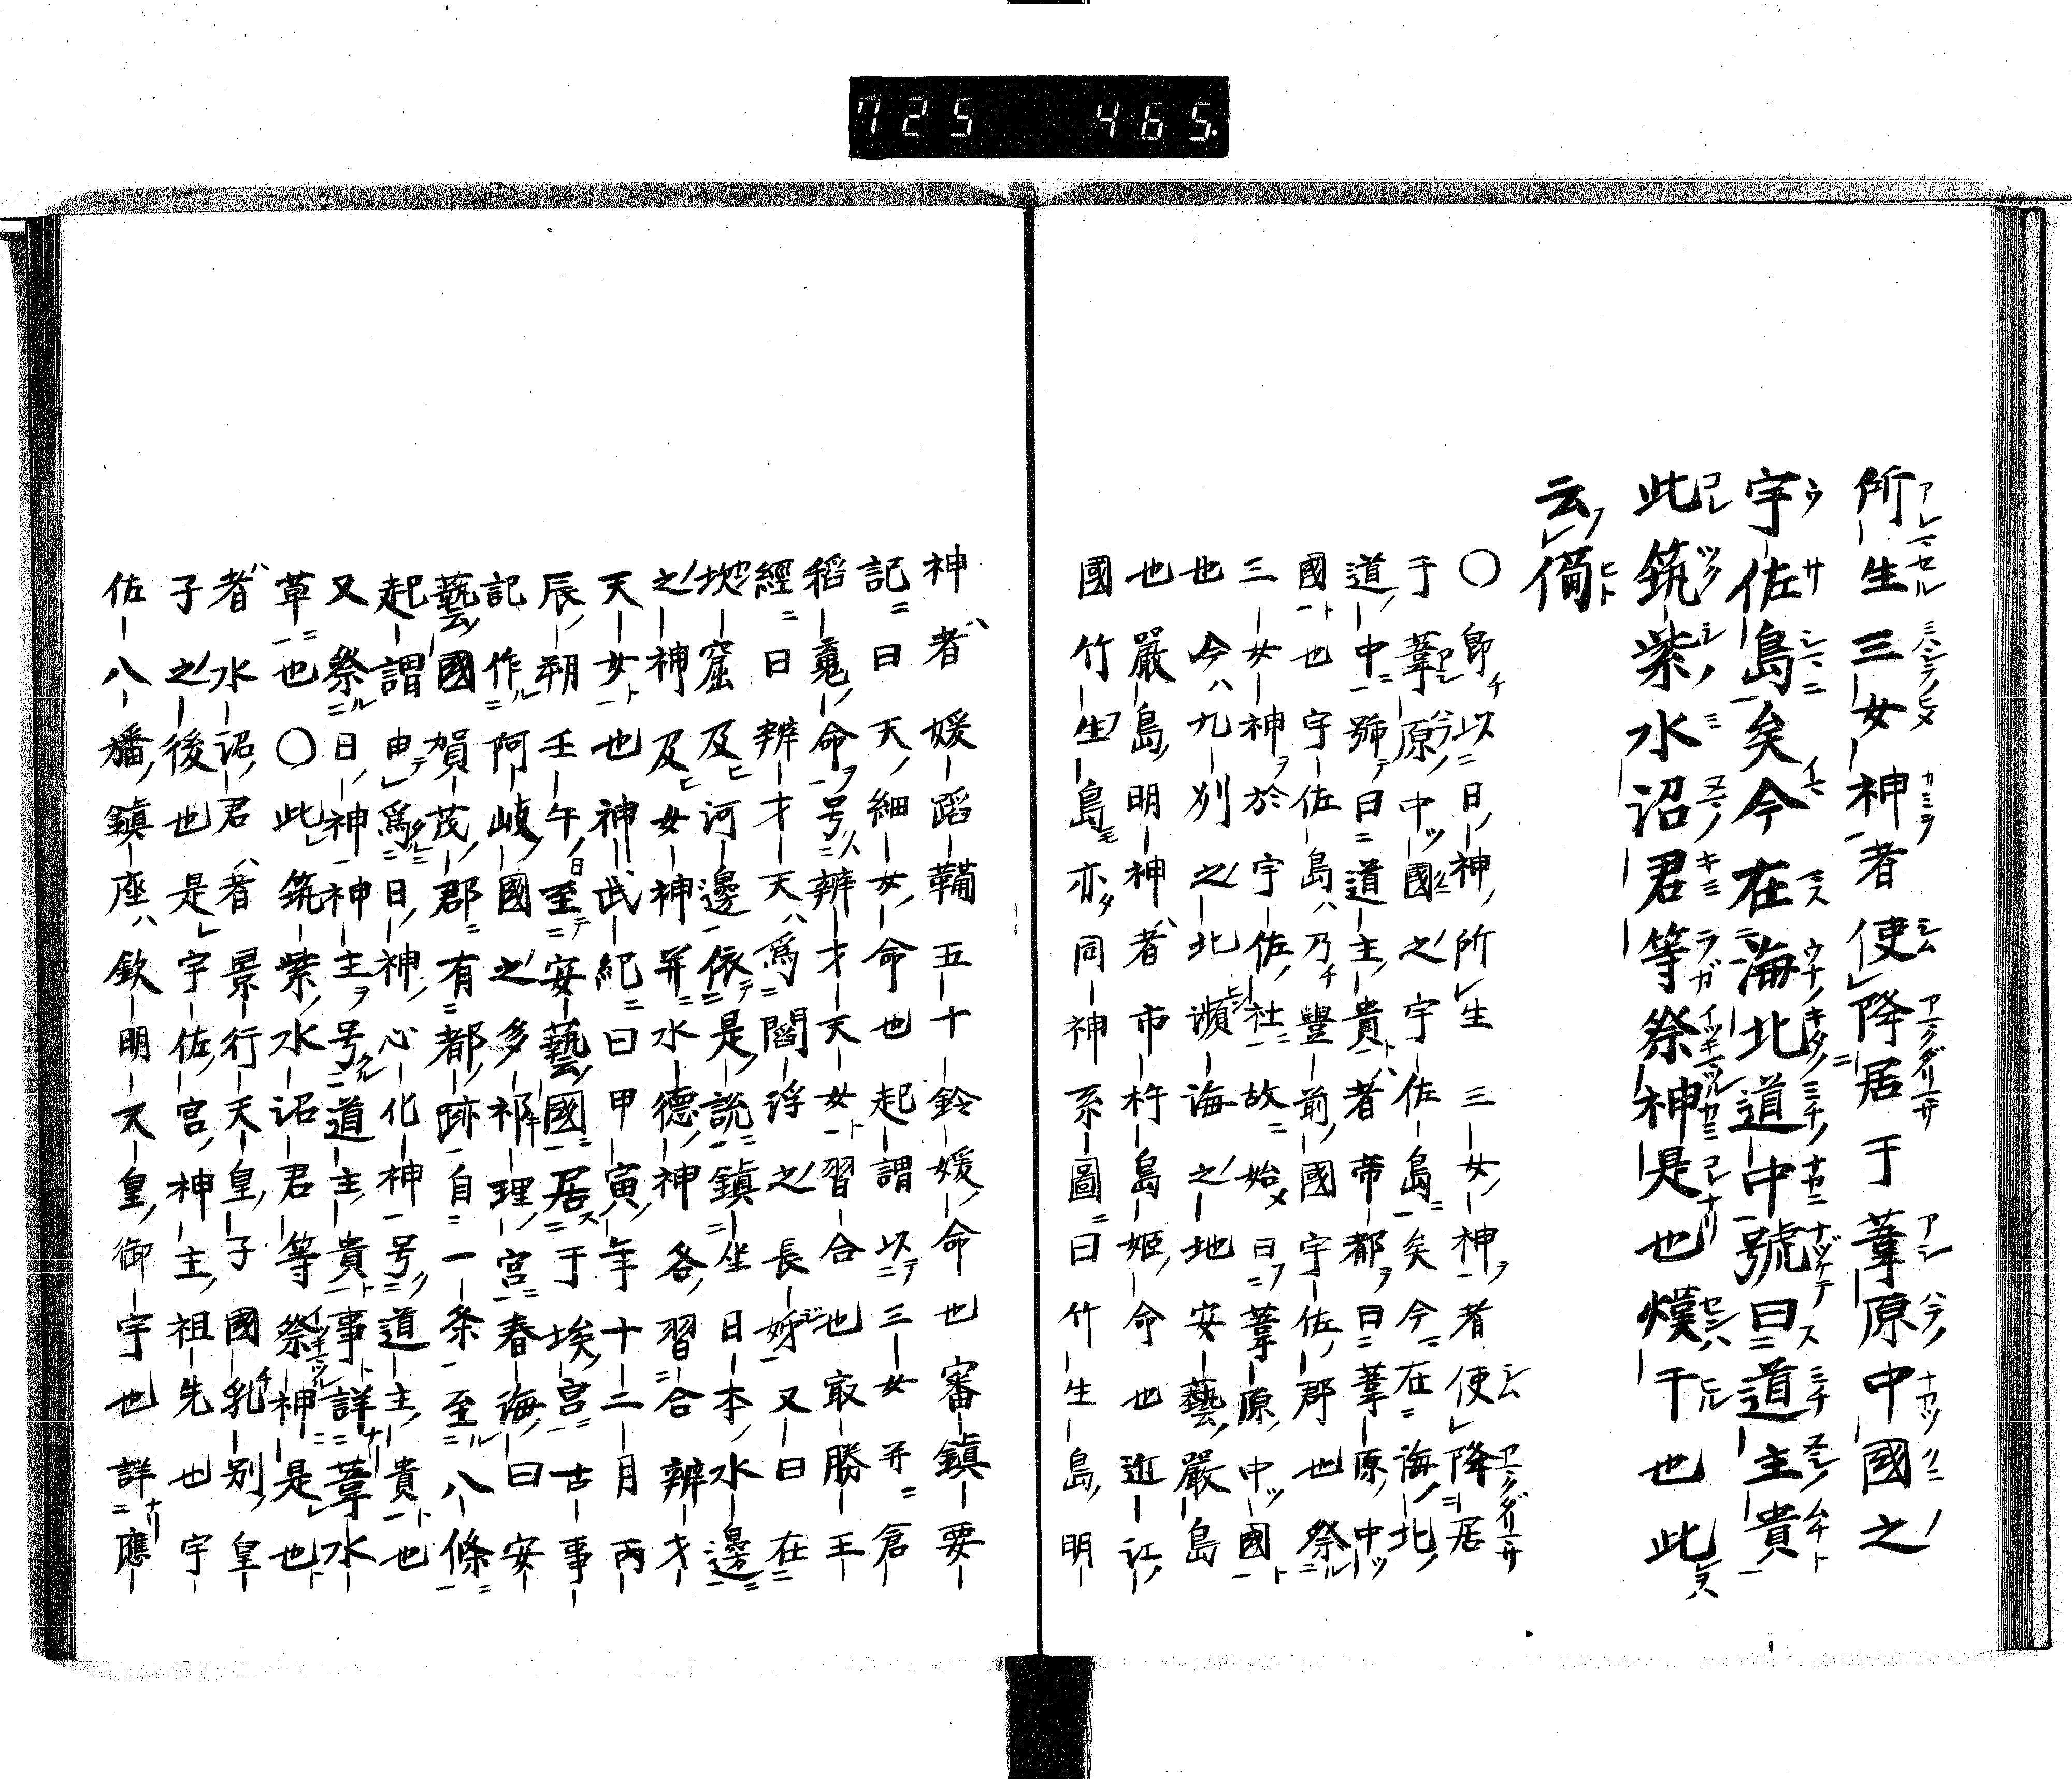 725 465.
所生三女神者使降居于葦原中國之
宇佐島矣今在海北道中號曰道主貴
此筑紫水沼君等祭神是也熯干也此
云備
〇即以日神所生三女神者使降居
于葦原中國之宇佐島矣今在海北
道中號曰道主貴者帝都曰葦原中
國也宇佐島乃豐前國宇佐郡也祭
三女神於宇佐社故始曰葦原中國
也今九州之北瀕海之地安藝嚴島
也嚴島明神者市杵島姬命也近江
國竹生島亦同神系圖曰竹生島明
神者媛蹈鞴五十鈴媛命也審鎮要
記曰天細女命也起謂以三女并倉
稻䰟命号辨才天女習合也取勝王
經曰辨才天為閻浮之長姊又曰在
坎窟及河邊依是說鎮坐日本水邊
之神及女神并水德神各習合辨才
天女也神武紀曰甲寅年十二月丙
辰朔壬午至安藝國居于埃宮古事
記作阿岐國之多祁理宮春海曰安
藝國賀茂郡有都跡自一条至八條
起謂申為日神心化神号道主貴也
又祭日神神主号道主貴事詳葦水
草也〇此筑紫水沼君等祭神是也
者水沼君者景行天皇子國乳別皇
子之後也是宇佐宮神主祖先也宇
佐八幡鎮座欽明天皇御宇也詳應